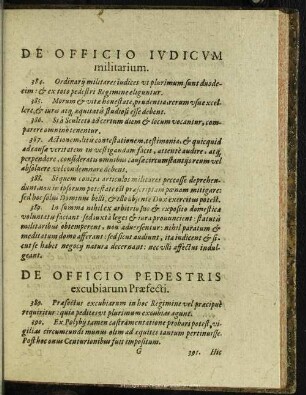 DE OFFICIO IVDICVM
militarium.
384. Ordinarij militares iudices vt plurimum sunt duode-
cim: & ex toto pedestri Regimine eliguntur.
385. Morum & vitæ honestate, prudentia, rerum vsu excel-
lere, & iuris atq; æquitatis studiosi esse debent.
386. Sculteto ad certum diem & locum vocantur, com-
parere omnino tenentur.
387. Actionem, litis contestationem, testimonia, & quicquid
ad causæ veritatem in vestigandam facit, attente audire, atq;
perpendere, consideratis omnibus causæ circumstantijs reum vel
absoluere vel condemnare debent.
388. Si quem contra articulos militares peccasse deprehen-
dunt non in ipsorum potestate est præscriptam pœnam mitigare:
sed hoc solus Dominus belli, & eius nomine Dux exercitus potest.
389. In summa nihil ex arbitrio suo & exposita domestica
voluntate faciant sed iuxta leges & iura pronuncient: statutis
militaribus obtemperent, non aduersentur: nihil paratum &
meditatum domo afferant: sed sicut audiunt, ita iudicent: & si-
cut se habet negocij natura decernant: nec vlli affectui indul-
geant.
DE OFFICIO PEDESTRIS
excubiarum Præfecti.
389. Præfectus excubiarum in hoc Regimine vel præcipue
requiritur: quia pedites vt plurimum excubias agunt.
390. Ex Polybij tamen castrametatione probari potest, vi-
gilias circumeundi munus olim ad equites tantum pertinuisse.
Post hoc onus Centurionibus fuit impositum.
G 391. Hic